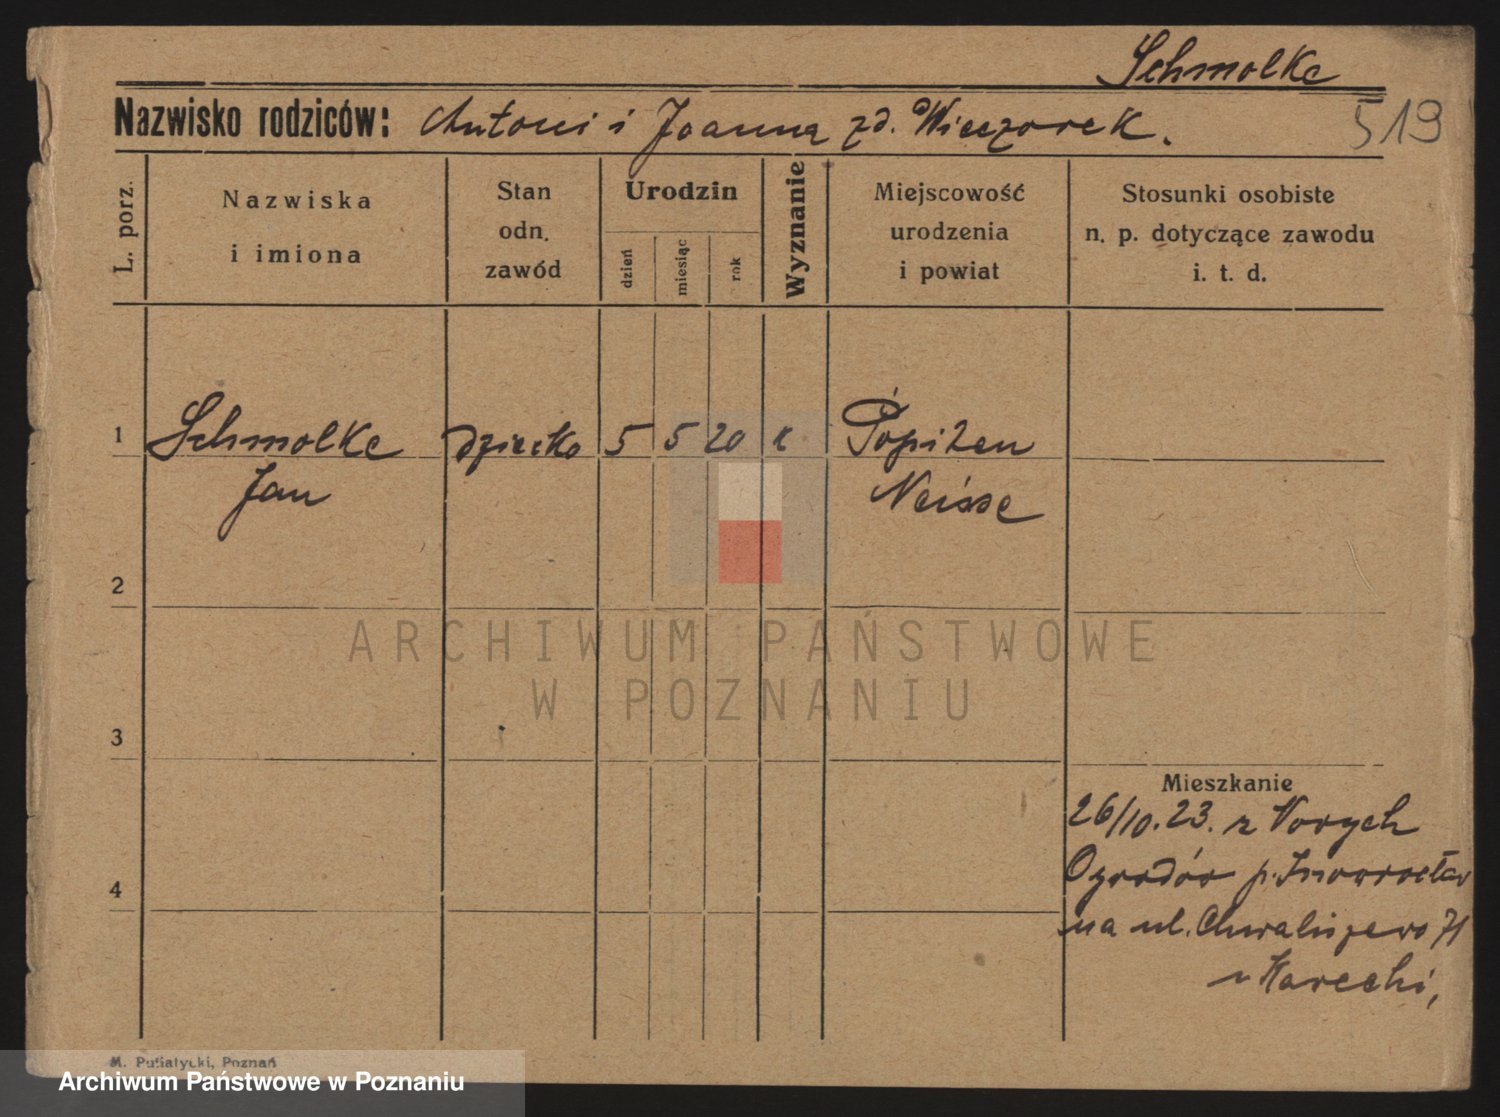 Schmolke
Nazwisko rodziców: Antoni i Joanna zd. Wieczorek.
519
L. porz.
Nazwiska
i imiona
Stan
odn.
zawód
Urodzin
dzień
miesiąc
rok
Wyznanie
Miejscowość
urodzenia
i powiat
Stosunki osobiste
n. p. dotyczące zawodu
i. t. d.
1 Schmolke dziecko 5 5 20 k
Jan Neisse
2
3
4
Mieszkanie
26/10.23. z Nowych
Ogrodów p. Inowrocław
na ul. Chwaliszewo 71
u
ARCHIWUM PAŃSTWOWE
W POZNANIU
M. Putiatycki, Poznań
Archiwum Państwowe w Poznaniu